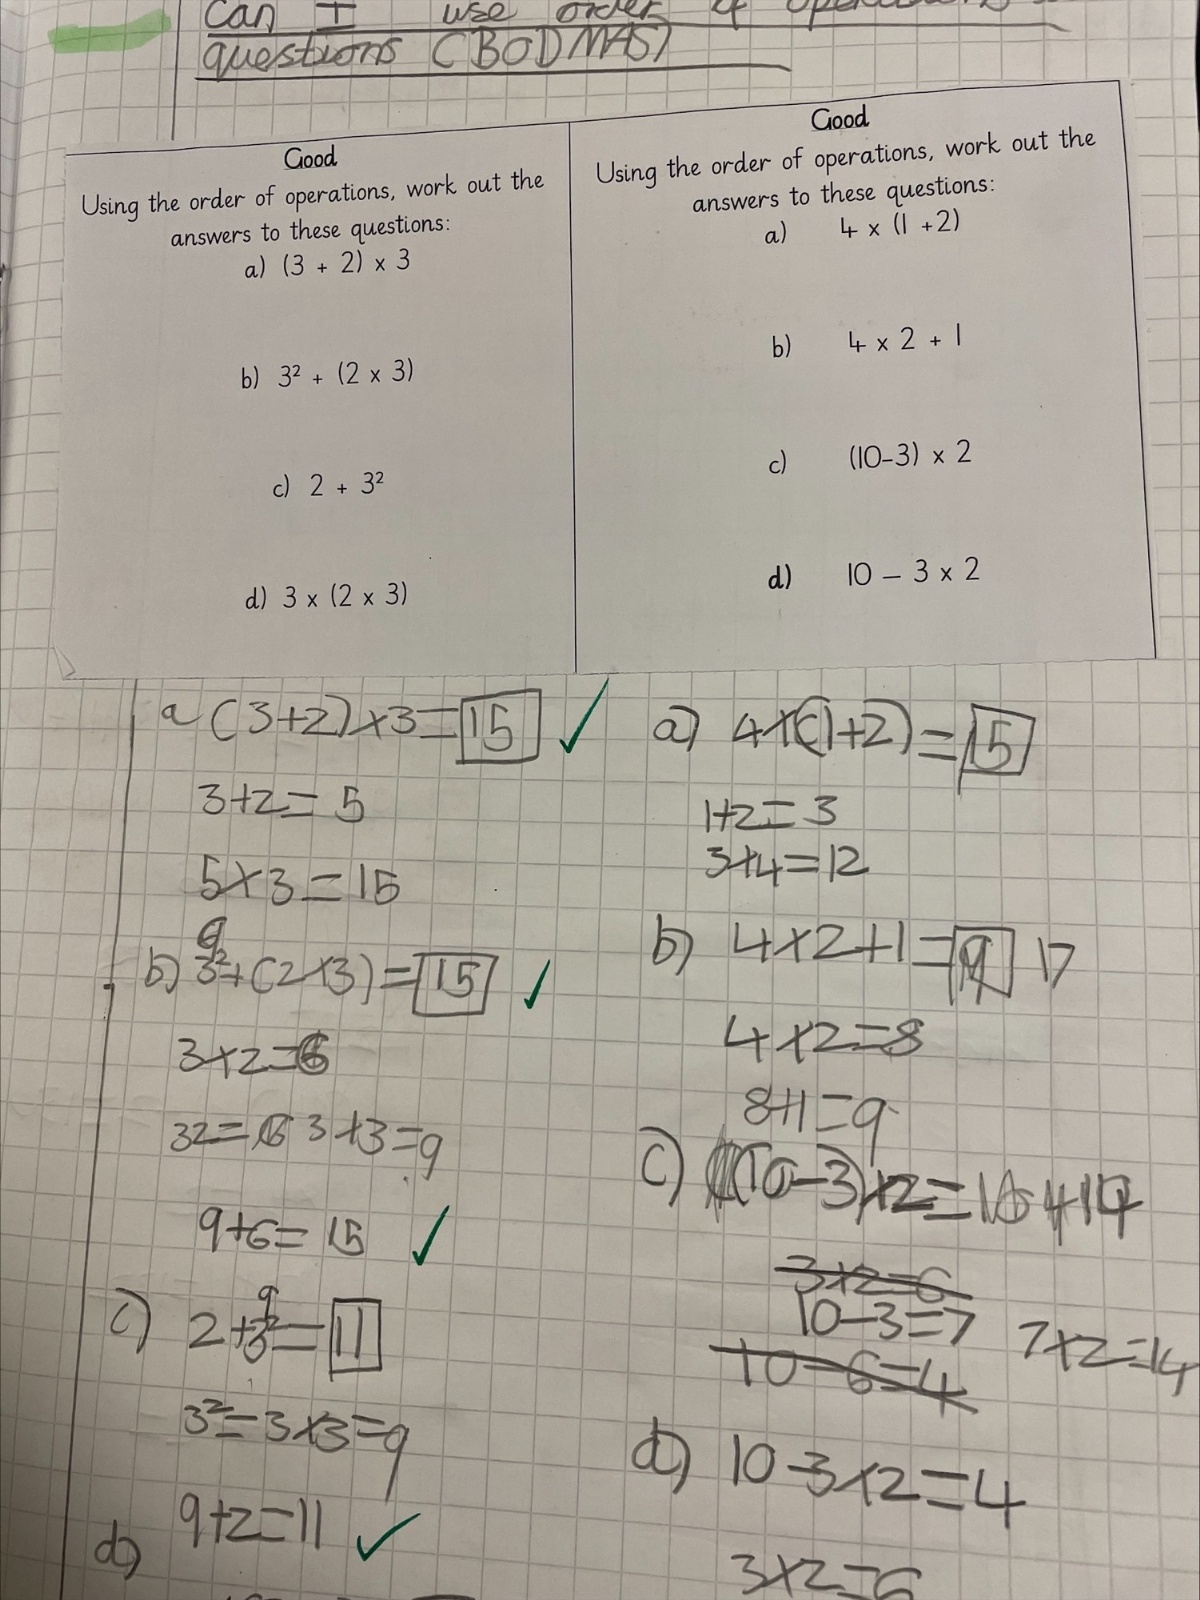 Can I use order of operations
questions (BODMAS)
Good
Using the order of operations, work out the
answers to these questions:
a) (3 + 2) x 3
b) 3² + (2 x 3)
c) 2 + 3²
d) 3 x (2 x 3)
Good
Using the order of operations, work out the
answers to these questions:
a) 4 x (1 +2)
b) 4 x 2 + 1
c) (10-3) x 2
d) 10 – 3 x 2
a (3+2)x3=15
3+2=5
5x3=15
9
b) 3²+(2x3)=15
3x2=6
32= 3x3=9
9+6=15
9
c) 2+3²=11
3²=3x3=9
9+2=11
d)
a) 4x(1+2)=15
1+2=3
3x4=12
b) 4x2+1=9 17
4x2=8
8+1=9
c) (10-3)x2= 14
3x2=6
10-3=7 7x2=14
10-6=4
d) 10-3x2=4
3x2=6